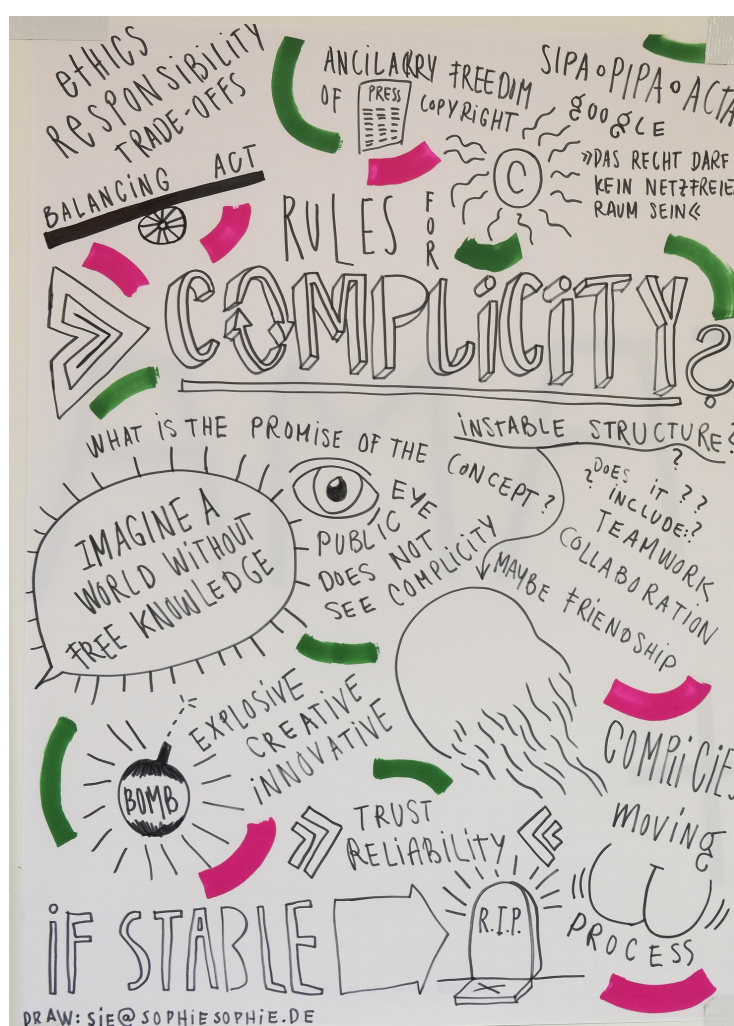 ETHICS
RESPONSIBILITY
TRADE-OFFS
BALANCING ACT
ANCILARRY FREEDIM
OF PRESS
COPYRIGHT
©
SIPA o PIPA o ACTA
GOOGLE
»DAS RECHT DARF
KEIN NETZFREIE
RAUM SEIN«
RULES
FOR
COMPLICITY?
WHAT IS THE PROMISE OF THE
CONCEPT?
INSTABLE STRUCTURE?
?
?DOES IT ??
INCLUDE:?
TEAMWORK
COLLABORATION
MAYBE FRIENDSHIP
IMAGINE A
WORLD WITHOUT
FREE KNOWLEDGE
EYE
PUBLIC
DOES NOT
SEE COMPLICITY
BOMB
EXPLOSIVE
CREATIVE
INNOVATIVE
TRUST
RELIABILITY
COMPLICIE
MOVING
PROCESS
IF STABLE
R.I.P.
DRAW: SIE@SOPHIESOPHIE.DE